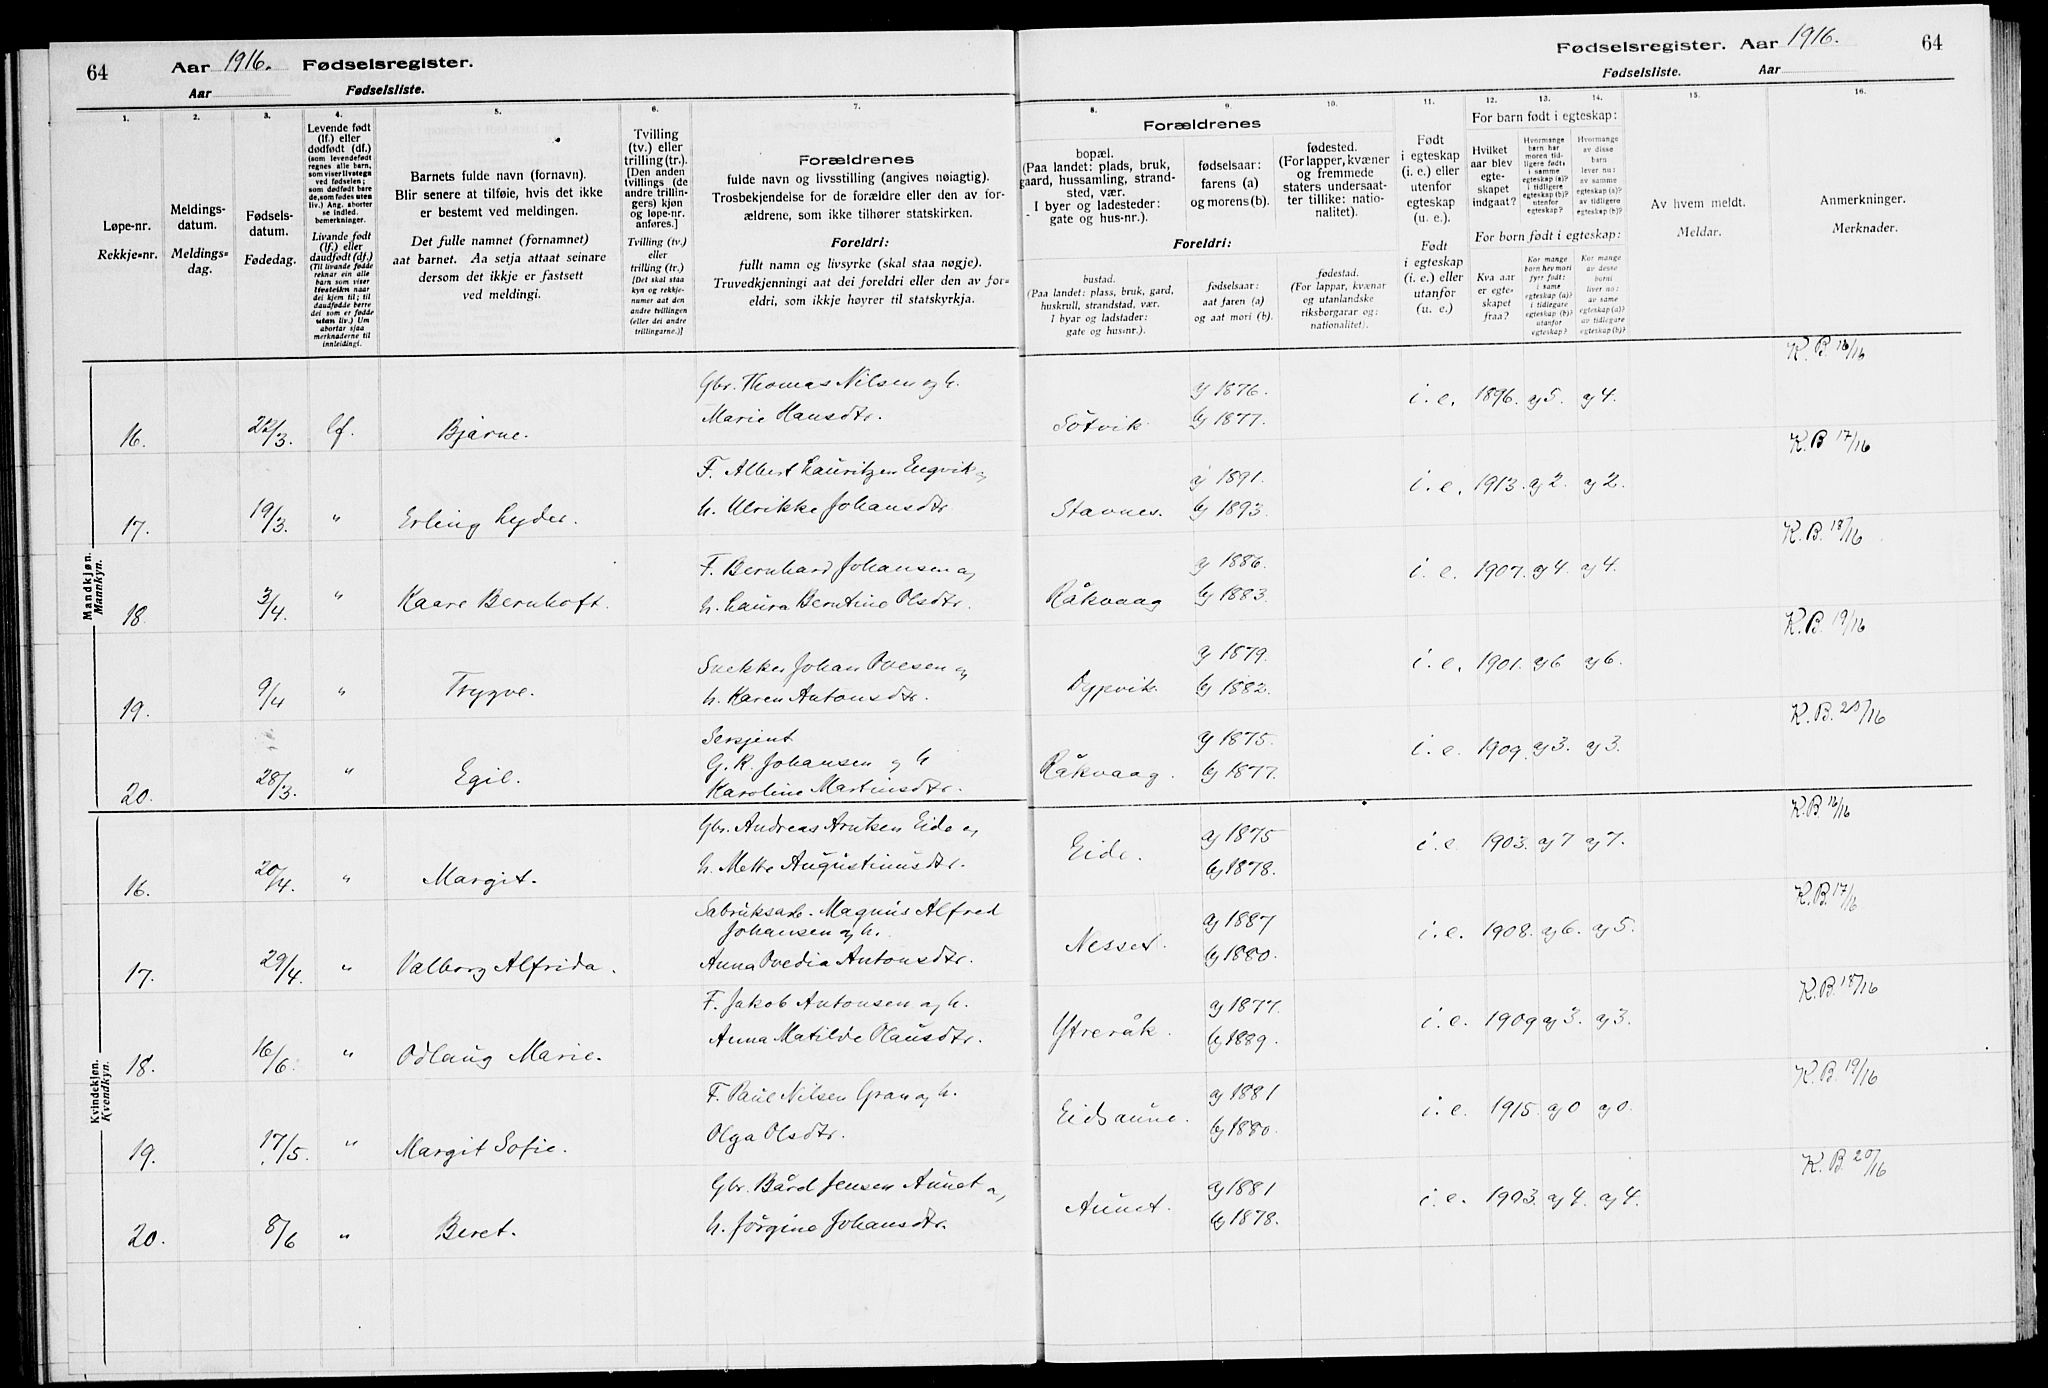 64 Aar 1916. Fødselsregister.
Aar Fødselsliste.
1. 2. 3. 4. 5. 6. 7.
Løpe-nr.
Rekkje-nr.
Meldings-
datum.
Meldings-
dag.
Fødsels-
datum.
Fødedag.
Levende født
(lf.) eller
dødfødt (df.)
(som levendefødt
regnes alle barn,
som viser livstegn
ved fødselen;
som dødfødt bare
de, som fødes uten
liv.) Ang. aborter
se indled.
bemerkninger.
Livande født
(lf.) eller
daudfødt (df.)
(Til livande fødde
reknar ein alle
barn som viser
livsteikn naar
dei kjem til; til
daudfødde berre
dei som er fødde
utan liv.) Um
abortar sjaa
merknaderne til
innleidingi.
Barnets fulde navn (fornavn).
Blir senere at tilføie, hvis det ikke
er bestemt ved meldingen.
Det fulle namnet (fornamnet)
aat barnet. Aa setja attaat seinare
dersom det ikkje er fastsett
ved meldingi.
Tvilling
(tv.) eller
trilling (tr.).
[Den anden
tvillings (de
andre trillin-
gers) kjøn
og løpe-nr.
anføres.]
Tvilling (tv.)
eller
trilling (tr.)
[Det skal staa
kyn og rekkje-
numer aat den
andre tvillingen
(eller dei andre
trillingarne.)]
Forældrenes
fulde navn og livsstilling (angives nøiagtig).
Trosbekjendelse for de forældre eller den av for-
ældrene, som ikke tilhører statskirken.
Foreldri:
fullt namn og livsyrke (skal staa nøgje).
Truvedkjenningi aat dei foreldri eller den av for-
eldri, som ikkje høyrer til statskyrkja.
Mandkjøn.
Mannkyn.
16. 22/3. lf. Bjarne. Gbr. Thomas Nilsen og h.
Marie Hansdtr.
17. 19/3. " Erling Lyder. F. Albert Lauritzen Engvik og
h. Ulrikke Johansdtr.
18. 3/4. " Kaare Bernhoft. F. Bernhard Johansen og
h. Laura Berntine Olsdtr.
19. 9/4 " Trygve. Snekker Johan Ovesen og
h. Karen Antonsdtr.
20. 28/3. " Egil. Sersjent
G. R. Johansen og h
Karoline Martinsdtr.
Kvindekjøn.
Kvendkyn.
16. 20/4. " Margit. Gbr. Andreas Arntsen Eide og
h. Mette Augustinusdtr.
17. 29/4. " Valborg Alfrida. Fabriksarb. Magnus Alfred
Johansen og h.
Anna Ovedia Antonsdtr.
18. 16/6. " Odlaug Marie. F. Jakob Antonsen og h.
Anna Matilde Olausdtr.
19. 17/5. " Margit Sofie. F. Paul Nilsen Gran og h.
Olga Olsdtr.
20. 8/6 " Beret. Gbr. Bård Jensen Aunet og
h. Jørgine Johansdtr.
Fødselsregister. Aar 1916. 64
Fødselsliste. Aar
8. 9. 10. 11. 12. 13. 14. 15. 16.
Forældrenes
bopæl.
(Paa landet: plads, bruk,
gaard, hussamling, strand-
sted, vær.
I byer og ladesteder:
gate og hus-nr.).
fødselsaar:
farens (a)
og morens (b).
fødested.
(For lapper, kvæner
og fremmede
staters undersaat-
ter tillike: natio-
nalitet).
Foreldri:
bustad.
(Paa landet: plass, bruk, gard,
huskrull, strandstad, vær.
I byar og ladstader:
gate og hus-nr.).
fødselsaar:
aat faren (a)
og aat mori (b).
fødestad.
(For lappar, kvænar
og utanlandske
riksborgarar og:
nationalitet).
Født
i egteskap
(i. e.) eller
utenfor
egteskap
(u. e.).
Født
i egteskap
(i. e.) eller
utanfor
egteskap
(u. e.).
For barn født i egteskap:
Hvilket
aar blev
egte-
skapet
indgaat?
Hvormange
barn har
moren tid-
ligere født,
i samme
egteskap (a)?
i tidligere
egteskap (b)?
utenfor
egteskap?
Hvormange
av disse
barn
lever nu:
av samme
egteskap (a)?
av tidligere
egteskap (b)?
For born født i egteskap:
Kva aar
er egte-
skapet
fraa?
Kor mange
born hev mori
fyrr født:
i same
egteskap (a)?
i tidlegare
egteskap (b)?
utanfor
egteskap?
Kor mange
av desse
borni
liver no:
av same
egteskap (a)?
av tidlegare
egteskap (b)?
Av hvem meldt.
Meldar.
Anmerkninger.
Merknader.
Søtvik a) 1876. b) 1877. i. e. 1896. a) 5. a) 4. K. B. 16/16
Stavnes. a) 1891. b) 1893. i. e. 1913. a) 2. a) 2. K. B 17/16
Råkvaag a) 1886. b) 1883. i. e. 1907. a) 4. a) 4. K. B. 18/16
Dypvik. a) 1879. b) 1882. i. e. 1901. a) 6 a) 6. K. B. 19/16
Råkvaag. a) 1875. b) 1877. i. e. 1909. a) 3. a) 3. K. B. 20/16
Eide. a) 1875 b) 1878. i. e. 1903. a) 7 a) 7. K. B. 16/16
Nesset. a) 1887 b) 1880. i. e. 1908. a) 6. a) 5. K. B. 17/16
Ytreråk. a) 1877. b) 1889. i. e. 1909 a) 3. a) 3. K. B. 18/16
Eidsaune. a) 1881 b) 1880. i. e. 1915. a) 0 a) 0. K. B. 19/16
Aunet. a) 1881 b) 1878. i. e. 1903. a) 4. a) 4. K. B. 20/16